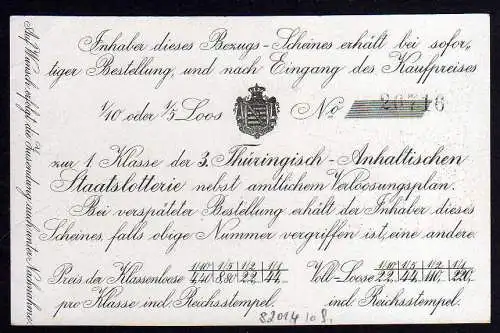 Inhaber dieses Bezugs-Scheines erhält bei sofor-
tiger Bestellung, und nach Eingang des Kaufpreises
1/10 oder 1/5 Loos No 20716
zur 1. Klasse der 3. Thüringisch-Anhaltischen
Staatslotterie nebst amtlichem Verloosungsplan.
Bei verspäteter Bestellung erhält der Inhaber dieses
Scheines, falls obige Nummer vergriffen ist, eine andere.
1/10 1/5 1/2 1/1 1/10 1/5 1/2 1/1
Preis der Klassenloose 4,40 8,80 22,- 44,- Voll-Loose 22,- 44,- 110,- 220,-
pro Klasse incl. Reichsstempel. incl. Reichsstempel.
Auf Wunsch erfolgt die Zusendung auch unter Nachnahme.